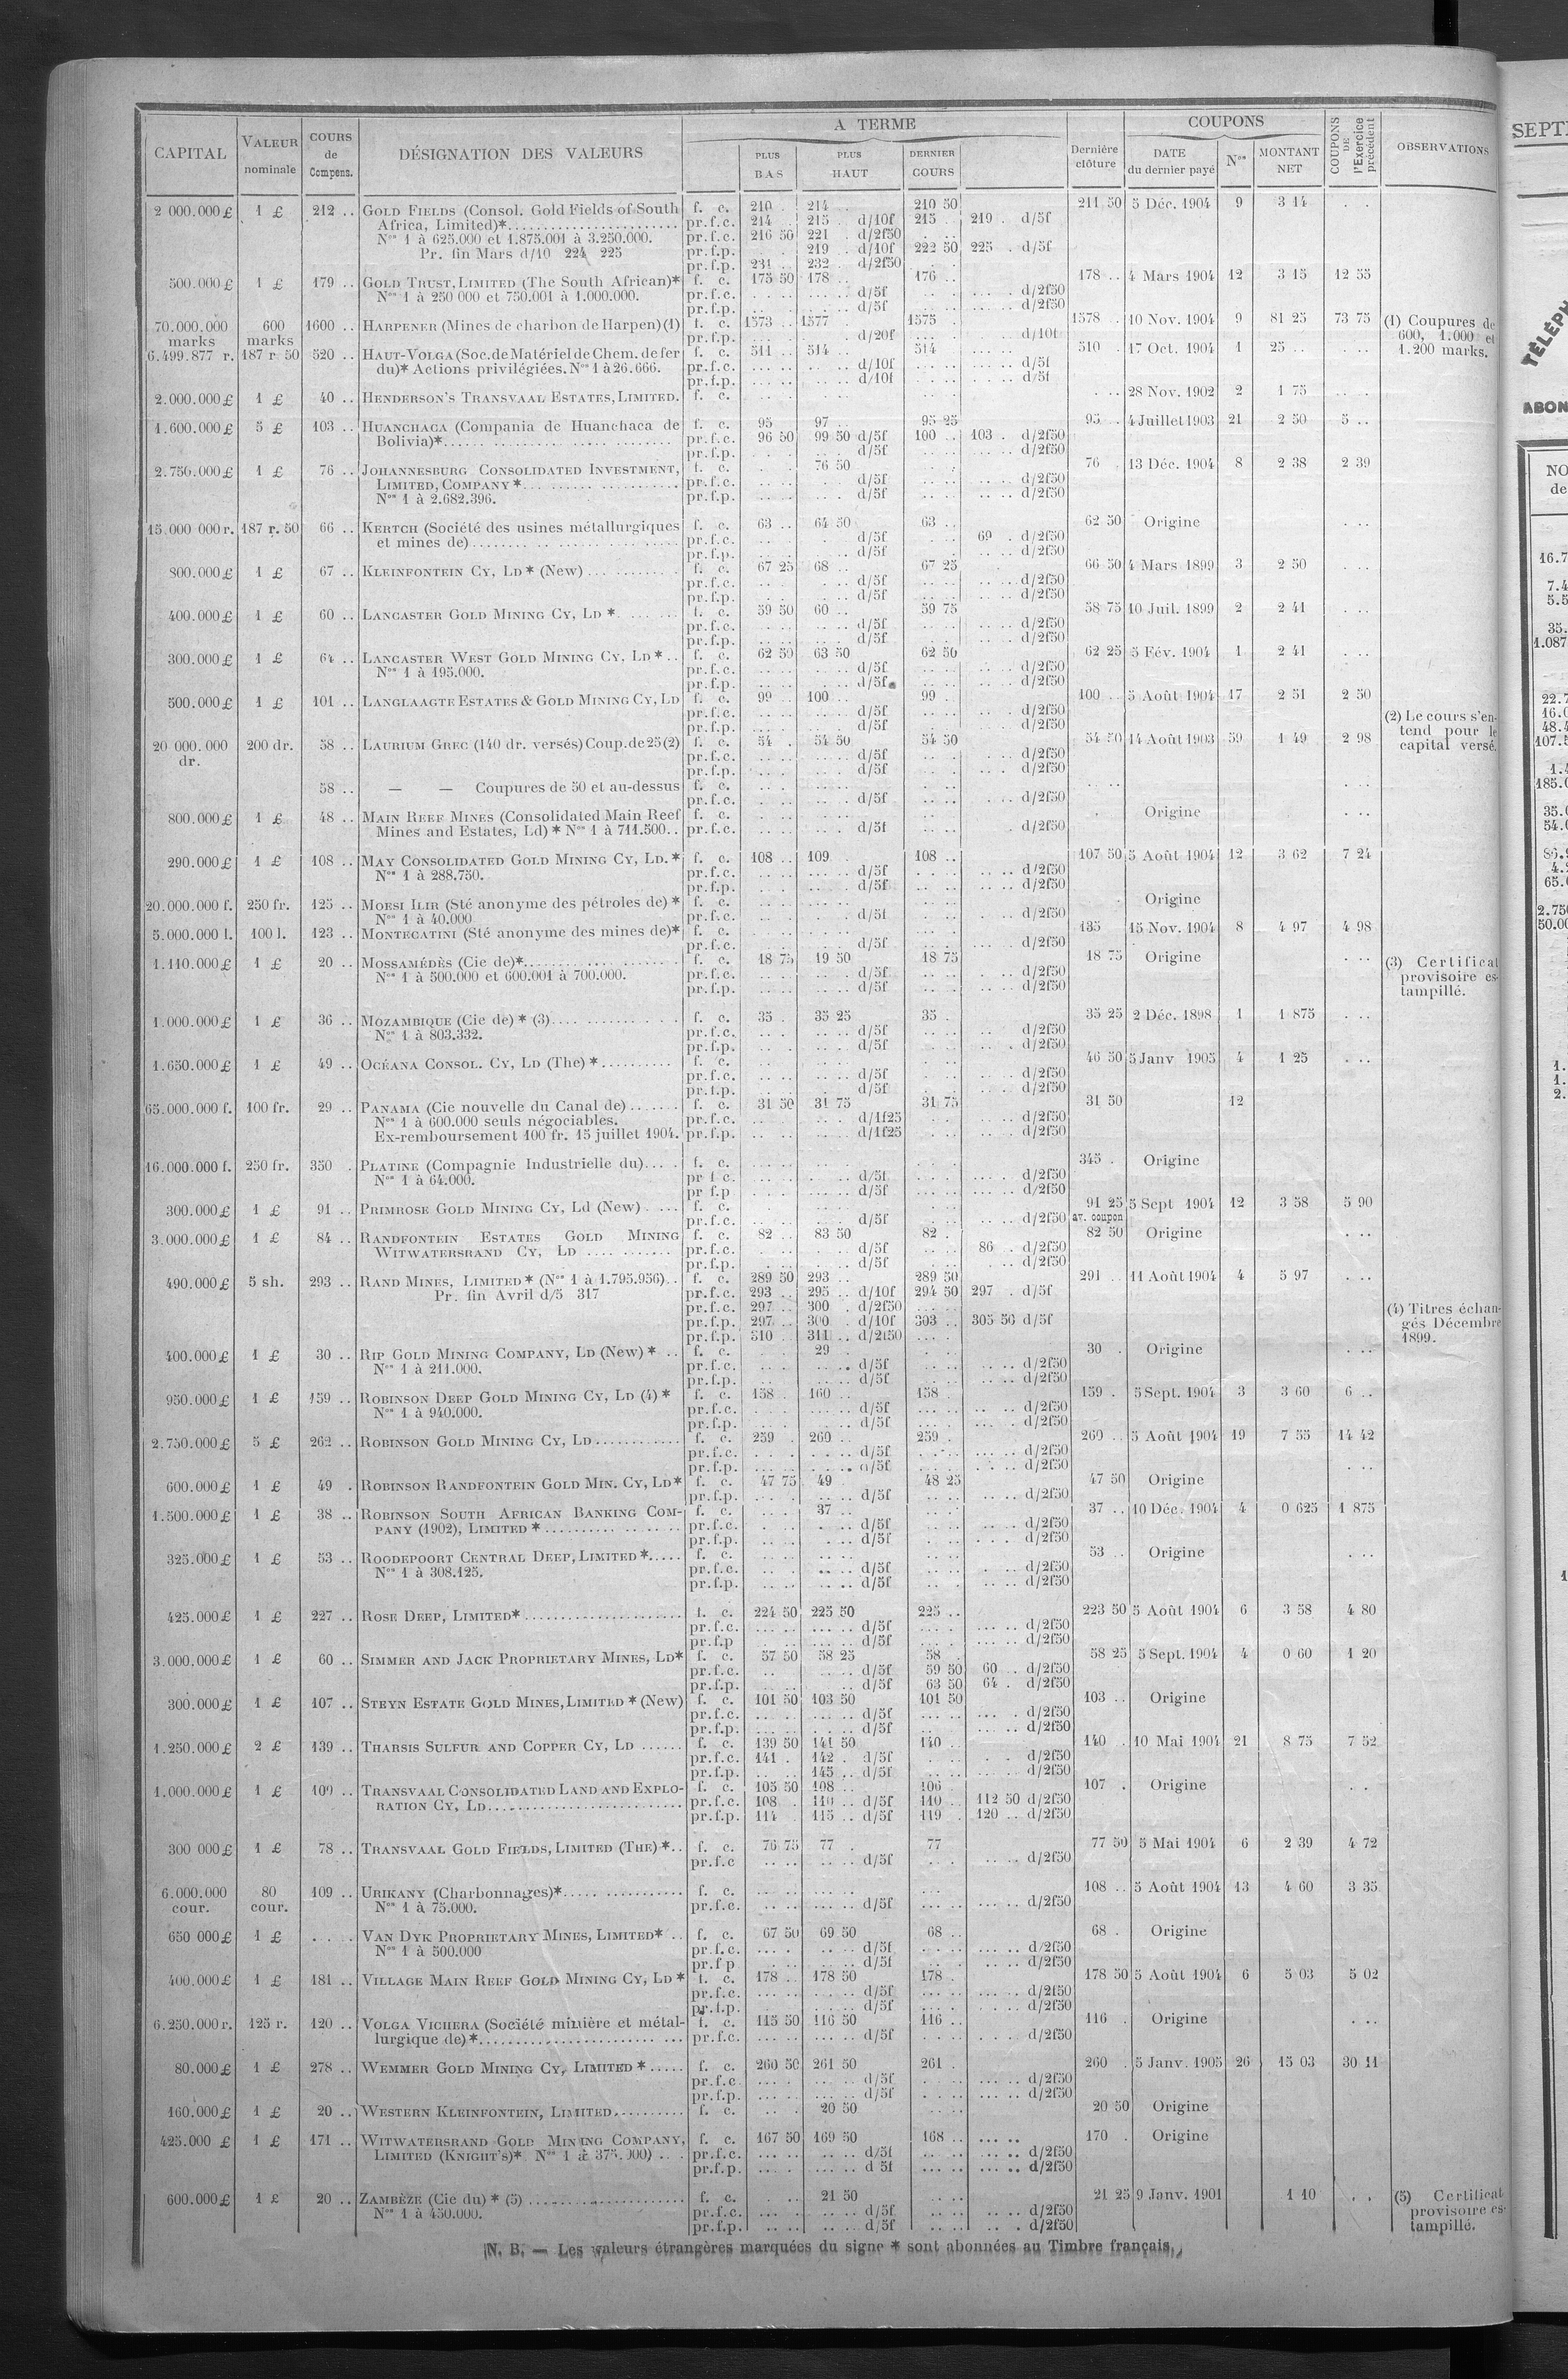 CAPITAL | VALEUR nominale | COURS de Compens. | DÉSIGNATION DES VALEURS | A TERME | PLUS BAS | PLUS HAUT | DERNIER COURS | Dernière clôture | COUPONS | DATE du dernier payé | Nos | MONTANT NET | COUPONS DE l'Exercice précédent | OBSERVATIONS
2 000.000 £ | 1 £ | 212 .. | GOLD FIELDS (Consol. Gold Fields of South | f. c. | 210 . | 214 | 210 50 | 211 50 | 5 Déc. 1904 | 9 | 3 14
Africa, Limited)* | pr.f.c. | 214 | 215 . d/10f | 215 .. | 219 . d/5f
Nos 1 à 625.000 et 1.875.001 à 3.250.000. | pr.f.c. | 216 50 | 221 . d/2f50
Pr. fin Mars d/10 224 225 | pr.f.p. | 219 . d/10f | 222 50 | 225 . d/5f
pr.f.p. | 231 | 232 d/2f50
500.000 £ | 1 £ | 179 .. | GOLD TRUST, LIMITED (The South African)* | f. c. | 175 50 | 178 .. | 176 .. | 178 .. | 4 Mars 1904 | 12 | 3 15 | 12 55
Nos 1 à 250 000 et 750.001 à 1.000.000. | pr.f.c. | d/5f | d/2f50
pr.f.p. | d/5f | d/2f50
70.000.000 marks | 600 marks | 1600 .. | HARPENER (Mines de charbon de Harpen) (1) | f. c. | 1573 .. | 1577 | 1575 . | 1578 .. | 10 Nov. 1904 | 9 | 81 25 | 73 75 | (1) Coupures de 600, 1.000 et 1.200 marks.
pr.f.p. | d/20f | d/10f
6.499.877 r. | 187 r. 50 | 520 .. | HAUT-VOLGA (Soc. de Matériel de Chem. de fer | f. c. | 511 . | 514 . | 514 | 510 . | 17 Oct. 1904 | 1 | 25 ..
du)* Actions privilégiées. Nos 1 à 26.666. | pr.f.c. | d/10f | d/5f
pr.f.p. | d/10f | d/5f
2.000.000 £ | 1 £ | 40 .. | HENDERSON'S TRANSVAAL ESTATES, LIMITED. | f. c. | 28 Nov. 1902 | 2 | 1 75
1.600.000 £ | 5 £ | 103 .. | HUANCHACA (Compania de Huanchaca de | f. c. | 95 | 97 .. | 95 25 | 95 .. | 4 Juillet 1903 | 21 | 2 50 | 5 ..
Bolivia)* | pr.f.c. | 96 50 | 99 50 d/5f | 100 .. | 103 . d/2f50
pr.f.p. | d/5f | d/2f50
2.750.000 £ | 1 £ | 76 .. | JOHANNESBURG CONSOLIDATED INVESTMENT, | f. c. | 76 50 | 76 . | 13 Déc. 1904 | 8 | 2 38 | 2 39
LIMITED, COMPANY * | pr.f.c. | d/5f | d/2f50
Nos 1 à 2.682.396. | pr.f.p. | d/5f | d/2f50
15.000 000 r. | 187 r. 50 | 66 .. | KERTCH (Société des usines métallurgiques | f. c. | 63 .. | 64 50 | 63 .. | 62 50 | Origine
et mines de) | pr.f.c. | d/5f | 69 . d/2f50
pr.f.p. | d/5f | d/2f50
800.000 £ | 1 £ | 67 .. | KLEINFONTEIN CY, LD * (New) | f. c. | 67 25 | 68 | 67 25 | 66 50 | 4 Mars 1899 | 3 | 2 50
pr.f.c. | d/5f | d/2f50
pr.f.p. | d/5f | d/2f50
400.000 £ | 1 £ | 60 .. | LANCASTER GOLD MINING CY, LD * | f. c. | 59 50 | 60 .. | 59 75 | 58 75 | 10 Juil. 1899 | 2 | 2 41
pr.f.c. | d/5f | d/2f50
pr.f.p. | d/5f | d/2f50
300.000 £ | 1 £ | 64 .. | LANCASTER WEST GOLD MINING CY, LD * | f. c. | 62 50 | 63 50 | 62 50 | 62 25 | 5 Fév. 1904 | 1 | 2 41
Nos 1 à 195.000. | pr.f.c. | d/5f | d/2f50
pr.f.p. | d/5f | d/2f50
500.000 £ | 1 £ | 101 .. | LANGLAAGTE ESTATES & GOLD MINING CY, LD | f. c. | 99 .. | 100 .. | 99 .. | 100 .. | 5 Août 1904 | 17 | 2 51 | 2 50
pr.f.c. | d/5f | d/2f50
pr.f.p. | d/5f | d/2f50
20 000.000 dr. | 200 dr. | 58 .. | LAURIUM GREC (140 dr. versés) Coup. de 25 (2) | f. c. | 54 . | 54 50 | 54 50 | 54 50 | 14 Août 1903 | 59 | 1 49 | 2 98 | (2) Le cours s'entend pour le capital versé.
pr.f.c. | d/5f | d/2f50
pr.f.p. | d/5f | d/2f50
58 .. | — — Coupures de 50 et au-dessus | f. c.
pr.f.c. | d/5f | d/2f50
800.000 £ | 1 £ | 48 .. | MAIN REEF MINES (Consolidated Main Reef | f. c. | Origine
Mines and Estates, Ld) * Nos 1 à 711.500.. | pr.f.c. | d/5f | d/2f50
290.000 £ | 1 £ | 108 .. | MAY CONSOLIDATED GOLD MINING CY, LD. * | f. c. | 108 .. | 109 | 108 .. | 107 50 | 5 Août 1904 | 12 | 3 62 | 7 24
Nos 1 à 288.750. | pr.f.c. | d/5f | d/2f50
pr.f.p. | d/5f | d/2f50
20.000.000 f. | 250 fr. | 125 .. | MOESI ILIR (Sté anonyme des pétroles de) * | f. c. | Origine
Nos 1 à 40.000 | pr.f.c. | d/5f | d/2f50
5.000.000 l. | 100 l. | 123 .. | MONTECATINI (Sté anonyme des mines de)* | f. c. | 135 | 15 Nov. 1904 | 8 | 4 97 | 4 98
pr.f.c. | d/5f | d/2f50
1.110.000 £ | 1 £ | 20 .. | MOSSAMÉDÈS (Cie de)* | f. c. | 18 75 | 19 50 | 18 75 | 18 75 | Origine | (3) Certificat provisoire estampillé.
Nos 1 à 500.000 et 600.001 à 700.000. | pr.f.c. | d/5f | d/2f50
pr.f.p. | d/5f | d/2f50
1.000.000 £ | 1 £ | 36 .. | MOZAMBIQUE (Cie de) * (3) | f. c. | 35 . | 35 25 | 35 . | 35 25 | 2 Déc. 1898 | 1 | 1 875
Nos 1 à 803.332. | pr.f.c. | d/5f | d/2f50
pr.f.p. | d/5f | d/2f50
1.650.000 £ | 1 £ | 49 .. | OCÉANA CONSOL. CY, LD (The) * | f. c. | 46 50 | 5 Janv 1905 | 4 | 1 25
pr.f.c. | d/5f | d/2f50
pr.f.p. | d/5f | d/2f50
65.000.000 f. | 100 fr. | 29 .. | PANAMA (Cie nouvelle du Canal de) | f. c. | 31 50 | 31 75 | 31 75 | 31 50 | 12
Nos 1 à 600.000 seuls négociables. | pr.f.c. | d/1f25 | d/2f50
Ex-remboursement 100 fr. 15 juillet 1904. | pr.f.p. | d/1f25 | d/2f50
16.000.000 f. | 250 fr. | 350 . | PLATINE (Compagnie Industrielle du) | f. c. | 345 . | Origine
Nos 1 à 64.000. | pr f c. | d/5f | d/2f50
pr f.p | d/5f | d/2f50
300.000 £ | 1 £ | 91 .. | PRIMROSE GOLD MINING CY, Ld (New) | f. c. | 91 25 | 5 Sept 1904 | 12 | 3 58 | 5 90
pr.f.c. | d/5f | d/2f50 | av. coupon
3.000.000 £ | 1 £ | 84 .. | RANDFONTEIN ESTATES GOLD MINING | f. c. | 82 .. | 83 50 | 82 . | 82 50 | Origine
WITWATERSRAND CY, LD | pr.f.c. | d/5f | 86 . d/2f50
pr.f.p. | d/5f | d/2f50
490.000 £ | 5 sh. | 293 .. | RAND MINES, LIMITED * (Nos 1 à 1.795.956) | f. c. | 289 50 | 293 .. | 289 50 | 291 .. | 11 Août 1904 | 4 | 5 97
Pr. fin Avril d/5 317 | pr.f.c. | 293 .. | 295 .. d/10f | 294 50 | 297 . d/5f
pr.f.c. | 297 .. | 300 . d/2f50
pr.f.p. | 297 .. | 300 . d/10f | 303 .. | 305 50 d/5f | (4) Titres échangés Décembre 1899.
pr.f.p. | 310 .. | 311 .. d/2f50
400.000 £ | 1 £ | 30 .. | RIP GOLD MINING COMPANY, LD (New) * | f. c. | 29 . | 30 . | Origine
Nos 1 à 211.000. | pr.f.c. | d/5f | d/2f50
pr.f.p. | d/5f | d/2f50
950.000 £ | 1 £ | 159 .. | ROBINSON DEEP GOLD MINING CY, LD (4) * | f. c. | 158 . | 160 .. | 158 . | 159 . | 5 Sept. 1904 | 3 | 3 60 | 6 ..
Nos 1 à 940.000. | pr.f.c. | d/5f | d/2f50
pr.f.p. | d/5f | d/2f50
2.750.000 £ | 5 £ | 262 .. | ROBINSON GOLD MINING CY, LD | f. c. | 259 . | 260 .. | 259 . | 260 .. | 5 Août 1904 | 19 | 7 55 | 14 42
pr.f.c. | d/5f | d/2f50
pr.f.p. | d/5f | d/2f50
600.000 £ | 1 £ | 49 . | ROBINSON RANDFONTEIN GOLD MIN. CY, LD* | f. c. | 47 75 | 49 | 48 25 | 47 50 | Origine
pr.f.p. | d/5f | d/2f50
1.500.000 £ | 1 £ | 38 .. | ROBINSON SOUTH AFRICAN BANKING COM- | f. c. | 37 .. | 37 .. | 10 Déc. 1904 | 4 | 0 625 | 1 875
PANY (1902), LIMITED * | pr.f.c. | d/5f | d/2f50
pr.f.p. | d/5f | d/2f50
325.000 £ | 1 £ | 53 .. | ROODEPOORT CENTRAL DEEP, LIMITED * | f. c. | 53 .. | Origine
Nos 1 à 308.125. | pr.f.c. | d/5f | d/2f50
pr.f.p. | d/5f | d/2f50
425.000 £ | 1 £ | 227 .. | ROSE DEEP, LIMITED* | f. c. | 224 50 | 225 50 | 225 .. | 223 50 | 5 Août 1904 | 6 | 3 58 | 4 80
pr.f.c. | d/5f | d/2f50
pr.f.p | d/5f | d/2f50
3.000.000 £ | 1 £ | 60 .. | SIMMER AND JACK PROPRIETARY MINES, LD* | f. c. | 57 50 | 58 25 | 58 . | 58 25 | 5 Sept. 1904 | 4 | 0 60 | 1 20
pr.f.c. | d/5f | 59 50 | 60 .. d/2f50
pr.f.p. | d/5f | 63 50 | 64 . d/2f50
300.000 £ | 1 £ | 107 .. | STEYN ESTATE GOLD MINES, LIMITED * (New) | f. c. | 101 50 | 103 50 | 101 50 | 103 .. | Origine
pr.f.c. | d/5f | d/2f50
pr.f.p. | d/5f | d/2f50
1.250.000 £ | 2 £ | 139 .. | THARSIS SULFUR AND COPPER CY, LD | f. c. | 139 50 | 141 50 | 140 .. | 140 . | 10 Mai 1904 | 21 | 8 75 | 7 52
pr.f.c. | 141 . | 142 . d/5f | d/2f50
pr.f.p. | 145 .. d/5f | d/2f50
1.000.000 £ | 1 £ | 109 .. | TRANSVAAL CONSOLIDATED LAND AND EXPLO- | f. c. | 105 50 | 108 .. | 106 . | 107 . | Origine
RATION CY, LD | pr.f.c. | 108 . | 110 .. d/5f | 110 .. | 112 50 d/2f50
pr.f.p. | 114 . | 115 .. d/5f | 119 . | 120 .. d/2f50
300 000 £ | 1 £ | 78 .. | TRANSVAAL GOLD FIELDS, LIMITED (THE) * | f. c. | 76 75 | 77 . | 77 | 77 50 | 5 Mai 1904 | 6 | 2 39 | 4 72
pr.f.c | d/5f | d/2f50
6.000.000 cour. | 80 cour. | 109 .. | URIKANY (Charbonnages)* | f. c. | 108 .. | 5 Août 1904 | 13 | 4 60 | 3 35
Nos 1 à 75.000. | pr.f.c. | d/5f | d/2f50
650 000 £ | 1 £ | VAN DYK PROPRIETARY MINES, LIMITED* | f. c. | 67 50 | 69 50 | 68 .. | 68 . | Origine
Nos 1 à 500.000 | pr.f.c. | d/5f | d/2f50
pr.f p | d/5f | d/2f50
400.000 £ | 1 £ | 181 .. | VILLAGE MAIN REEF GOLD MINING CY, LD * | f. c. | 178 .. | 178 50 | 178 . | 178 50 | 5 Août 1904 | 6 | 5 03 | 5 02
pr.f.c. | d/5f | d/2f50
pr.f.p. | d/5f | d/2f50
6.250.000 r. | 125 r. | 120 .. | VOLGA VICHERA (Société minière et métal- | f. c. | 115 50 | 116 50 | 116 .. | 116 . | Origine
lurgique de) * | pr.f.c. | d/5f | d/2f50
80.000 £ | 1 £ | 278 .. | WEMMER GOLD MINING CY, LIMITED * | f. c. | 260 50 | 261 50 | 261 . | 260 . | 5 Janv. 1905 | 26 | 15 03 | 30 11
pr.f.c | d/5f | d/2f50
pr.f.p. | d/5f | d/2f50
160.000 £ | 1 £ | 20 .. | WESTERN KLEINFONTEIN, LIMITED | f. c. | 20 50 | 20 50 | Origine
425.000 £ | 1 £ | 171 .. | WITWATERSRAND GOLD MINING COMPANY, | f. c. | 167 50 | 169 50 | 168 .. | 170 . | Origine
LIMITED (KNIGHT'S)* Nos 1 à 375.000) | pr.f.c. | d/5f | d/2f50
pr.f.p. | d 5f | d/2f50
600.000 £ | 1 £ | 20 .. | ZAMBÈZE (Cie du) * (5) | f. c. | 21 50 | 21 25 | 9 Janv. 1901 | 1 10 | (5) Certificat provisoire estampillé.
Nos 1 à 450.000. | pr.f.c. | d/5f | d/2f50
pr.f.p. | d/5f | d/2f50
N. B. — Les valeurs étrangères marquées du signe * sont abonnées au Timbre français.
SEPT
TÉLÉPH
ABON
NO
de